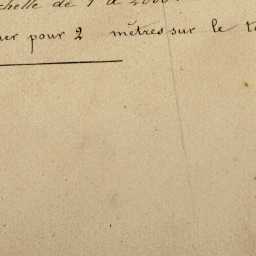 chelle de 1 à 2000.
er pour 2 mètres sur le t